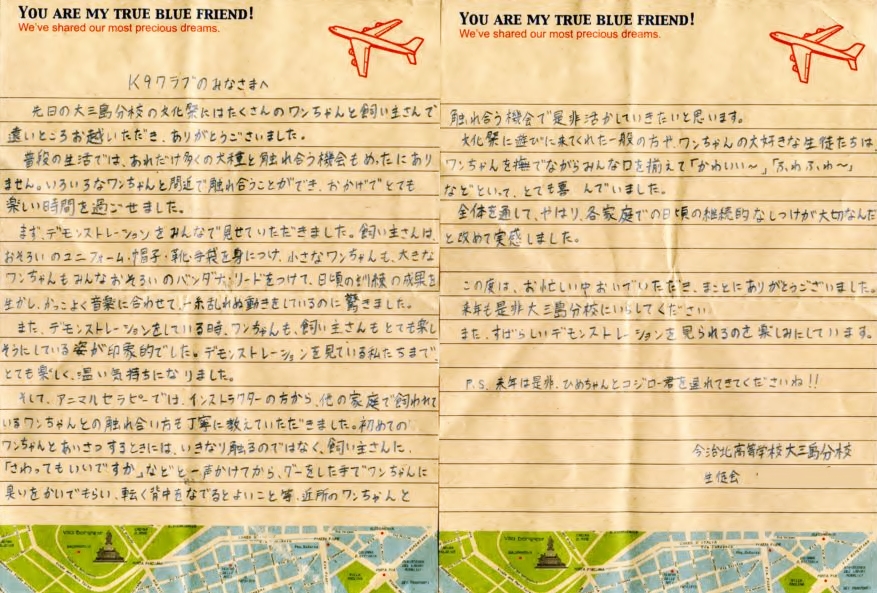 YOU ARE MY TRUE BLUE FRIEND!
We've shared our most precious dreams.
K9クラブのみなさまへ
先日の大三島分校の文化祭にはたくさんのワンちゃんと飼い主さんで
遠いところお越しいただき、ありがとうございました。
普段の生活では、あれだけ多くの犬種と触れ合う機会もめったにあり
ません。いろいろなワンちゃんと間近で触れ合うことができ、おかげでとても
楽しい時間を過ごせました。
まず、デモンストレーションをみんなで見せていただきました。飼い主さんは、
おそろいのユニフォーム・帽子・靴・手袋を身につけ、小さなワンちゃんも、大きな
ワンちゃんもみんなおそろいのバンダナ・リードをつけて、日頃の訓練の成果を
生かし、かっこよく音楽に合わせて、一糸乱れぬ動きをしているのに驚きました。
また、デモンストレーションをしている時、ワンちゃんも、飼い主さんもとても楽し
そうにしている姿が印象的でした。デモンストレーションを見ている私たちまで、
とても楽しく、温い気持ちになりました。
そして、アニマルセラピーでは、インストラクターの方から、他の家庭で飼われて
いるワンちゃんとの触れ合い方も丁寧に教えていただきました。初めての
ワンちゃんとあいさつするときには、いきなり触るのではなく、飼い主さんに、
「さわってもいいですか」などと一声かけてから、グーをした手でワンちゃんに
臭いをかいでもらい、軽く背中をなでるとよいこと等、近所のワンちゃんと
YOU ARE MY TRUE BLUE FRIEND!
We've shared our most precious dreams.
触れ合う機会で是非活かしていきたいと思います。
文化祭に遊びに来てくれた一般の方や、ワンちゃんの大好きな生徒たちは、
ワンちゃんを撫でながらみんな口を揃えて「かわいい〜」「ふわふわ〜」
などといって、とても喜んでいました。
全体を通して、やはり、各家庭での日頃の継続的なしつけが大切なんだ
と改めて実感しました。
この度は、お忙しい中おいでいただき、まことにありがとうございました。
来年も是非大三島分校にいらしてください
また、すばらしいデモンストレーションを見られるのを楽しみにしています。
P.S. 来年は是非、ひめちゃんとコジロー君を連れてきてくださいね!!
今治北高等学校大三島分校
生徒会